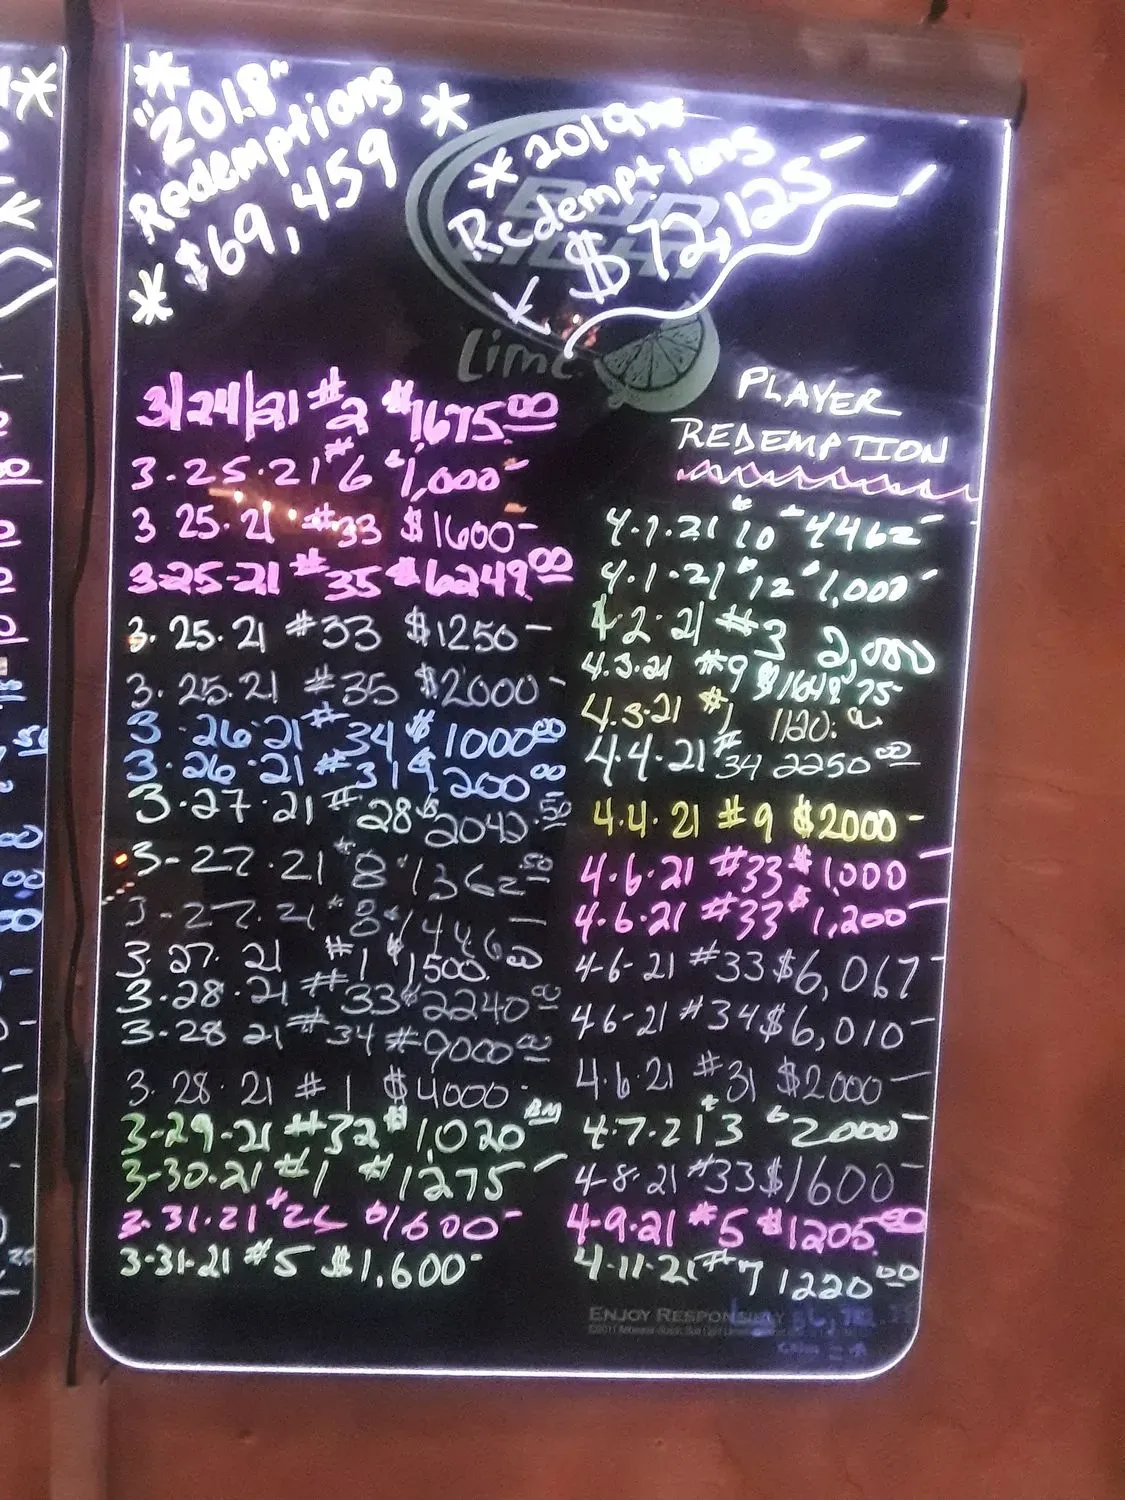 * "2018" *
Redemptions
* $69,459
* 2019
Redemptions
$72,125-
BUD
LIGHT
Lime
3/24/21 #2 $1675.00
3.25.21 #6 $1,000-
3 25.21 #33 $1600-
3-25-21 #35 $6249.00
3.25.21 #33 $1250-
3.25.21 #35 $2000-
3.26.21 #34 $1000.00
3.26.21 #31 $1,200.00
3.27.21 #28 $2042.50
3-27.21 #8 $1362.50
3-27.21 #8 $1446-
3.27.21 #1 $1500.00
3.28.21 #33 $2240.00
3-28 21 #34 #9000.00
3.28.21 #1 $4000-
3-29-21 #32 $1,020
3-30.21 #1 #1275-
3.31.21 $1600-
3-31-21 #5 $1,600-
PLAYER
REDEMPTION
4.1.21 #10 $4462-
4.1.21 #12 $1,000-
4.2.21 #3 2,000
4.3.21 #9 $1649.75
4.3.21 #1 1120.00
4.4.21 #34 2250.00
4.4.21 #9 $2000-
4.6.21 #33 $1,000-
4.6.21 #33 $1,200-
4-6-21 #33 $6,067-
4.6-21 #34 $6,010-
4.6.21 #31 $2000-
4.7.21 #3 $2000-
4-8-21 #33 $1600-
4-9.21 #5 $1205.00
4-11-21 #7 1220.00
ENJOY RESPONSIBLY